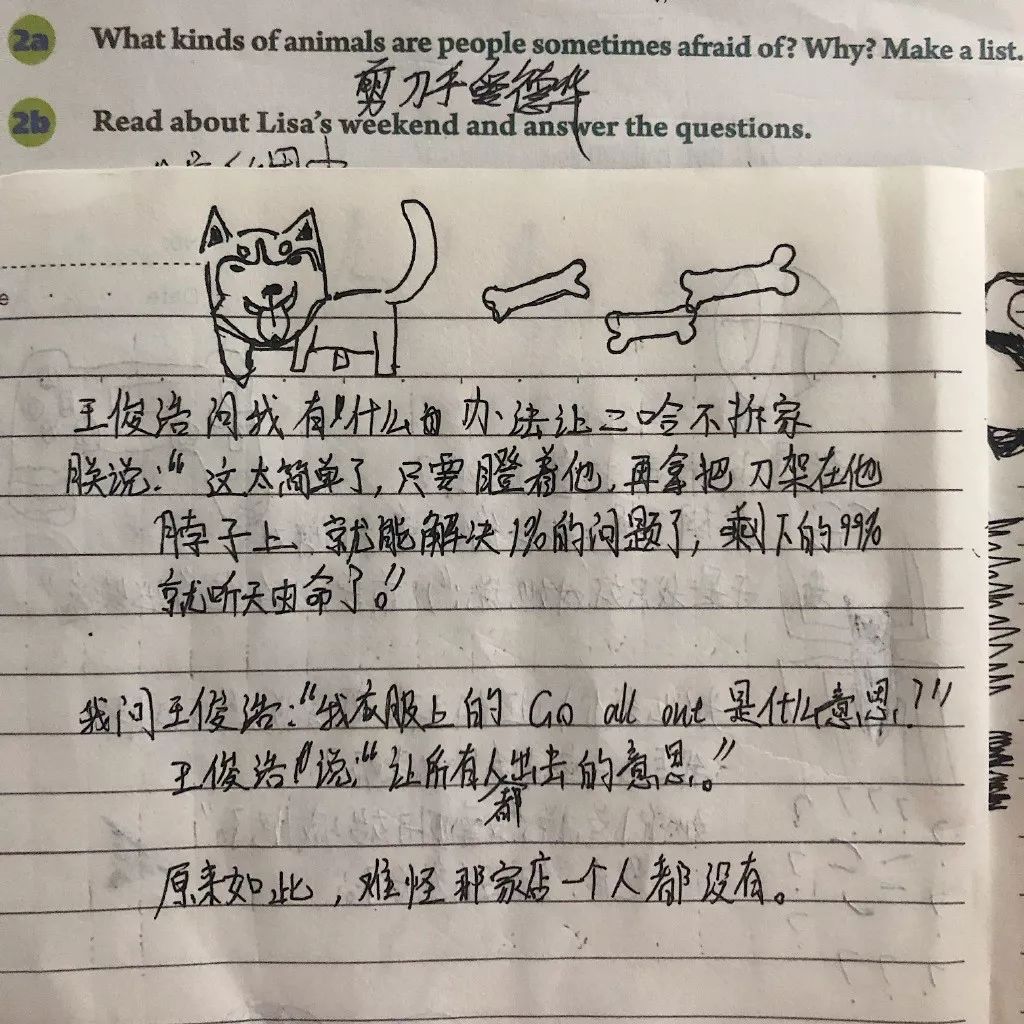 2a What kinds of animals are people sometimes afraid of? Why? Make a list.
剪刀手雷德华
2b Read about Lisa's weekend and answer the questions.
王俊浩问我有什么办法让二哈不拆家
朕说:“这太简单了,只要瞪着他,再拿把刀架在他
脖子上、就能解决1%的问题了,剩下的99%
就听天由命了。”
我问王俊浩:“我衣服上的 Go all out 是什么意思?”
王俊浩说:“让所有人都出去的意思。”
原来如此,难怪那家店一个人都没有。